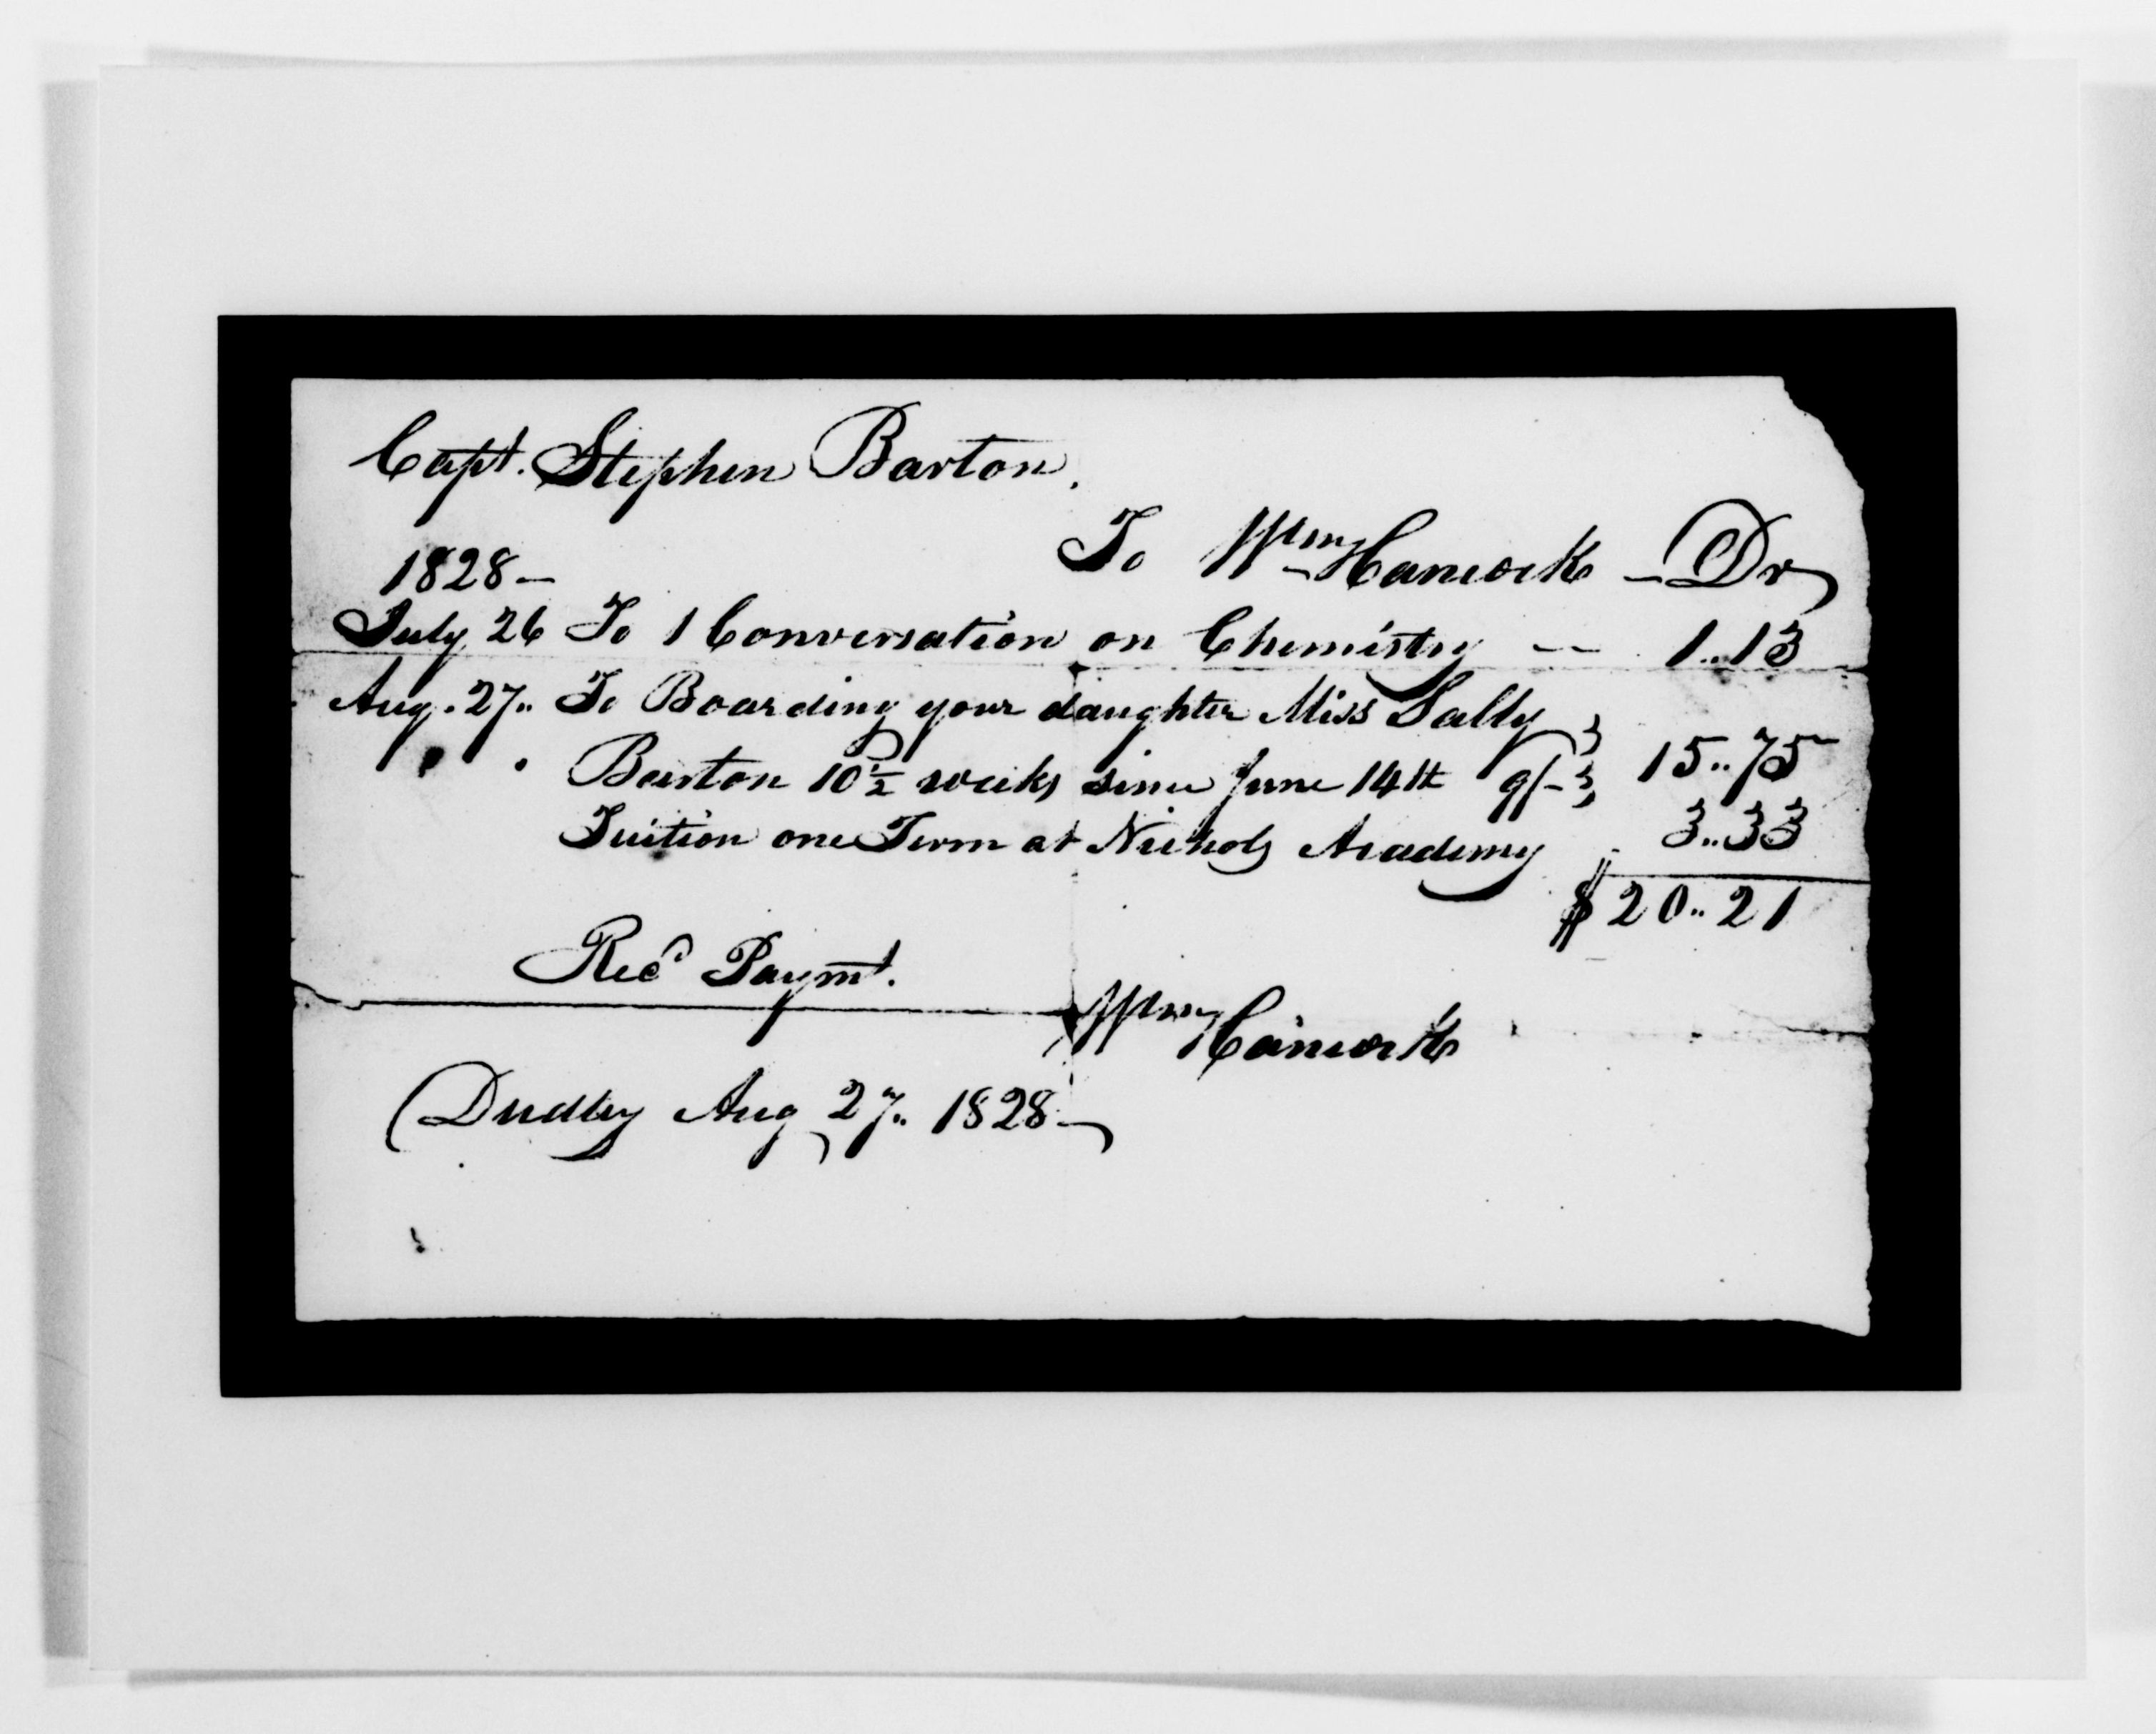 Capt. Stephen Barton.
To Wm Hancock - Dr
1828 -
July 26 To 1 Conversation on Chemistry -- 1..13
Aug. 27.. To Boarding your daughter Miss Sally
Barton 10½ weeks since June 14th 9/- 15..75
Tuition one Term at Nichols Academy 3..33
$20..21
Recd Paymt.
Wm Hancock
Dudley Aug 27.. 1828 -